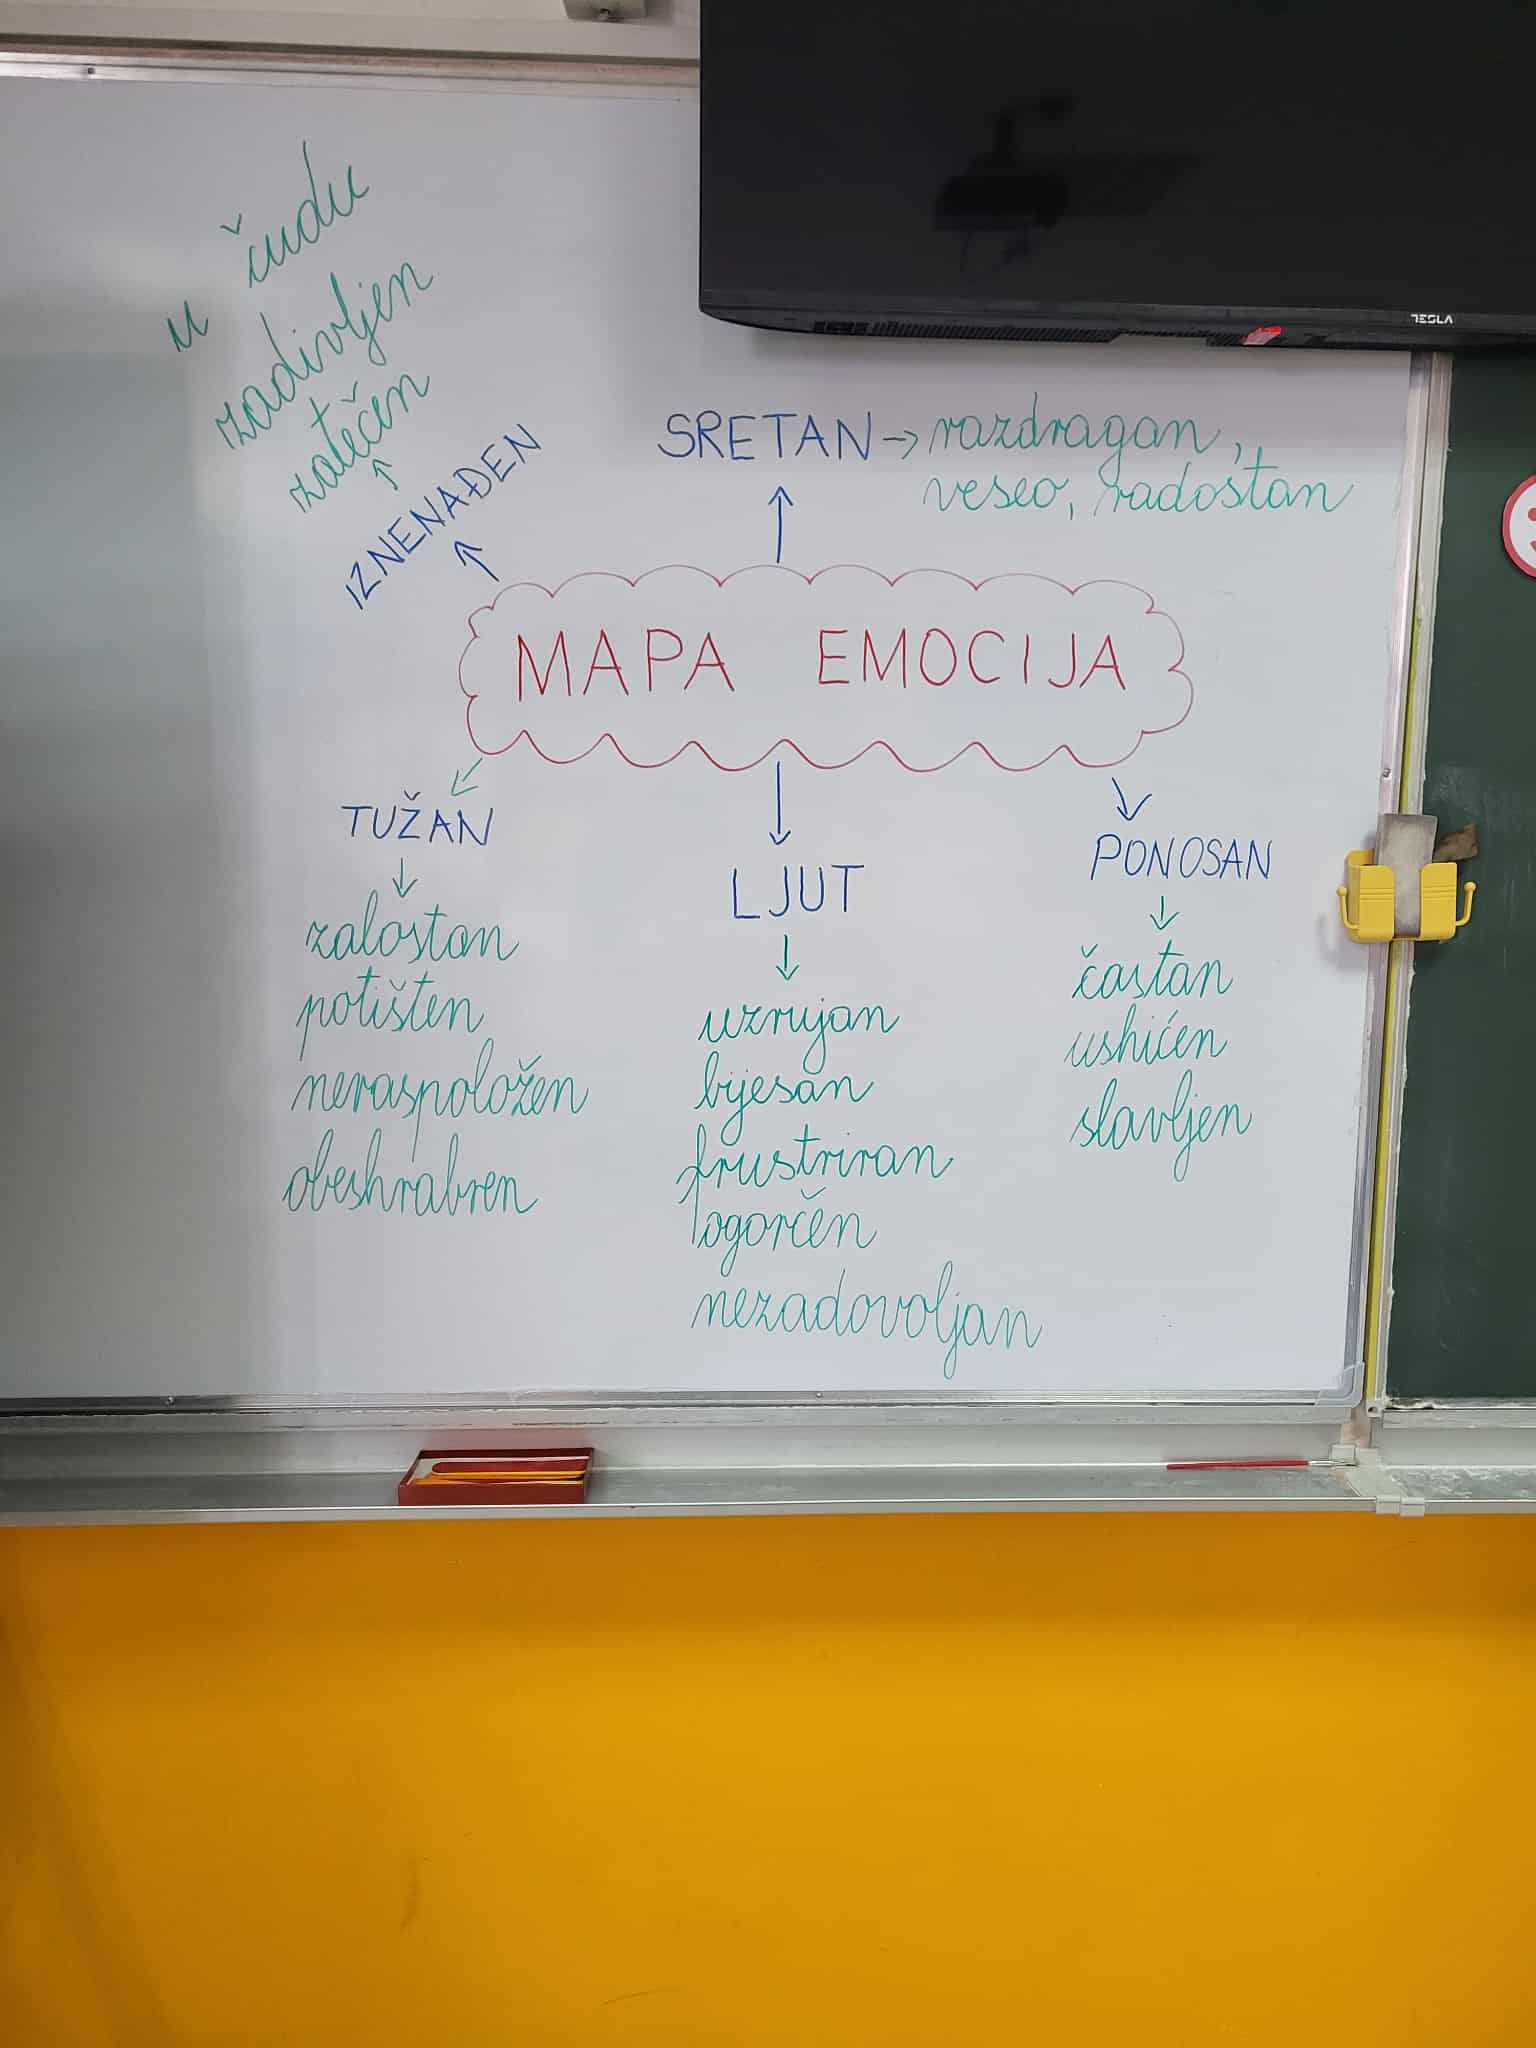 u čudu
zadivljen
zatečen
IZNENAĐEN
TESLA
SRETAN → razdragan,
veseo, radostan
MAPA EMOCIJA
TUŽAN
zalostan
potišten
neraspoložen
obeshrabren
LJUT
uzrujan
bijesan
frustriran
ogorčen
nezadovoljan
PONOSAN
častan
ushićen
slavljen